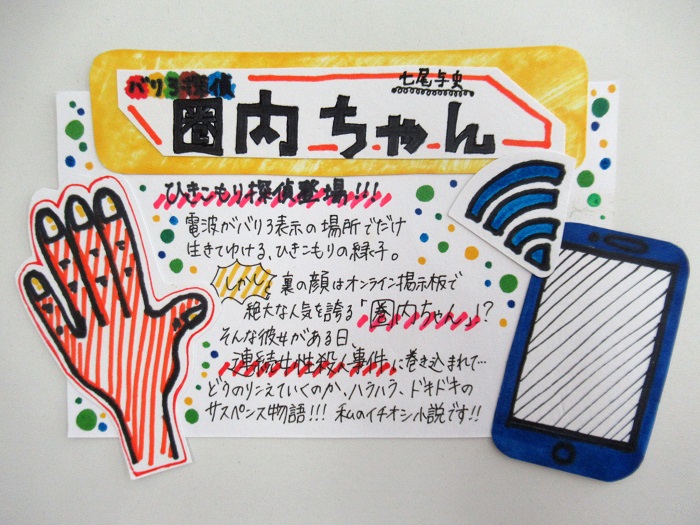 バリ3探偵
七尾与史
圏内ちゃん
ひきこもり探偵登場!!!
電波がバリ3表示の場所でだけ
生きてゆける、ひきこもりの緑子。
しかし、裏の顔はオンライン掲示板で
絶大な人気を誇る「圏内ちゃん」?
そんな彼女がある日、
連続女性殺人事件に巻き込まれて…
どうのりこえていくのか、ハラハラ、ドキドキの
サスペンス物語!!! 私のイチオシ小説です!!